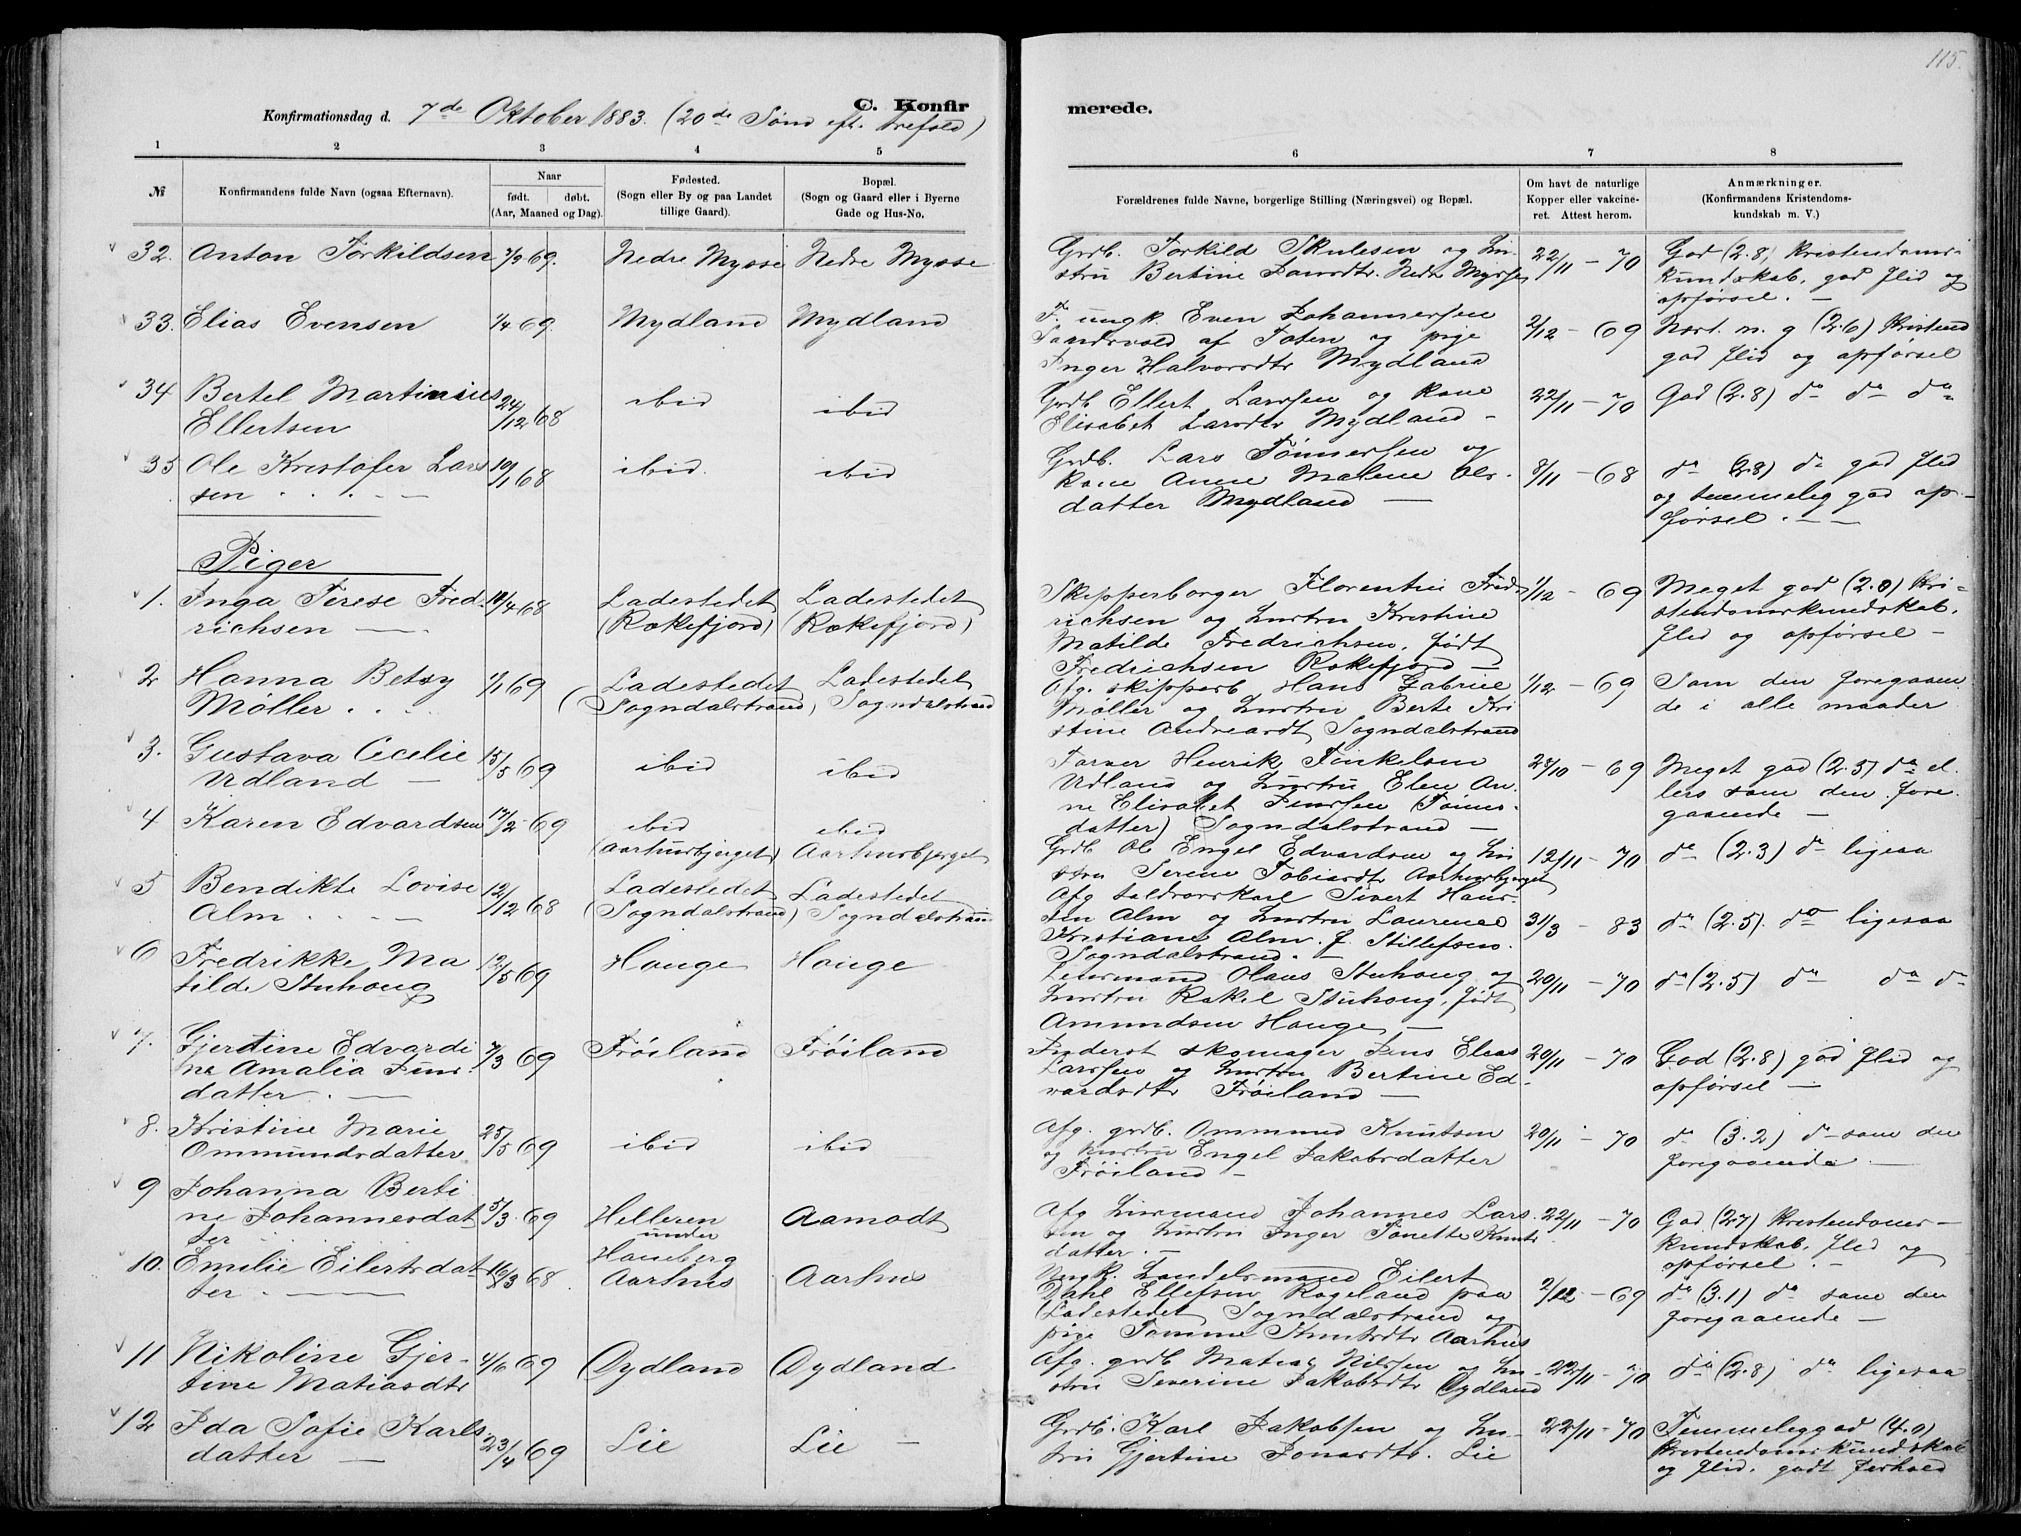 115.
Konfirmationsdag d. 7de Oktober 1883. (20de Sønd eft. Trefold)
C. Konfirmerede.
1 2 3 4 5 6 7 8
№
Konfirmandens fulde Navn (ogsaa Efternavn).
Naar
født. døbt.
(Aar, Maaned og Dag).
Fødested.
(Sogn eller By og paa Landet
tillige Gaard).
Bopæl.
(Sogn og Gaard eller i Byerne
Gade og Hus-No.
Forældrenes fulde Navne, borgerlige Stilling (Næringsvei) og Bopæl.
Om havt de naturlige
Kopper eller vakcine-
ret. Attest herom.
Anmærkninger.
(Konfirmandens Kristendoms-
kundskab m. V.)
32. Anton Torkildsen 7/9 69. Nedre Mysse Nedre Mysse
Grdb. Torkild Skulesen og Hu-
stru Bertine Jansdtr. Nedre Myssen
22/11 – 70
God (2.8) Kristendoms-
kundskab, god flid og
opførsel. –
33. Elias Evensen 1/4 69. Mydland Mydland
F. ungk. Even Johannessen
Sandvold af Toten og pige
Inger Halvorsdtr Mydland
2/12 – 69
Nost. n. g (2.6) Kristend
god flid og opførsel
34 Bertel Martinius
Ellertsen
24/12 68 ibid ibid
Grdb Ellert Larssen og kone
Elisabet Larsdtr Mydland –
22/11 – 70
God (2.8) do do do
35 Ole Kristofer Lars
sen
10/1 68 ibid. ibid
Grdb. Lars Tønnessen og
kone Anne Malene Ols-
datter Mydland –
8/11 – 68
do (2.8) do god flid
og temmelig god op-
førsel. –
Piger
1. Inga Terese Fred-
richsen –
18/4 68
Ladestedet
(Rekefjord)
Ladestedet
(Rekefjord)
Skipperborger Florentin Fred-
richsen og hustru Kristine
Matilde Fredrichsen, født
Fredrichsen Rekefjord –
1/12 – 69
Meget god (2.0) Kri-
stendomskundskab,
flid og opførsel –
2 Hanna Betsy
Møller
1/1 69
Ladestedet
(Sogndalstrand)
Ladestedet
Sogndalstrand
Afg. skipperb Hans Gabriel
Møller og hustru Berte Kri
stine Andreasdt Sogndalstrand
1/12 – 69
Som den foregaaen
de i alle maader
3. Gustava Cecilie
Udland –
15/5 69 ibid ibid
Farver Henrik Tønkelsen
Udland og hustru Elen An-
ne Elisabet Jenssen (Tønnes-
datter) Sogndalstrand –
28/10 – 69
Meget god (2.5) do el-
lers som den fore-
gaaende –
4 Karen Edvardsen 17/2 69
ibid
(Aarhusbjerget)
ibid
Aarhusbjerget
Grdb Ole Engel Edvardsen og hu
stru Serene Tobiasdtr Aarhusbjerget
12/11 – 70
do (2.3) do ligesaa
5 Bendikte Lovise
Alm
12/12 68
Ladestedet
(Sogndalstrand)
Ladestedet
Sogndalstrand
Afg toldrorskarl Sivert Hans-
sen Alm og hustru Laurense
Kristiane Alm f. Stillefsen.
Sogndalstrand. –
31/3 – 83
do (2.5) do ligesaa
6 Fredrikke Ma
tilde Stuhoug
12/5 69 Hauge Hauge
Leiermand Olaus Stuhoug og
hustru Rakel Stuhoug, født
Amundsen Hauge –
20/11 – 70
do (2.5) do do do
7. Gjertine Edvardi
ne Amalia Jens-
datter. –
7/3 69 Frøiland Frøiland
Inderst skomager Jens Elias
Larssen og hustru Bertine Ed-
vardsdtr Frøiland –
20/11 – 70
God (2.8) god flid og
opførsel –
8. Kristine Marie
Ommundsdatter
25/5 69 ibid ibid
Afg. grdb. Ommund Knutsen
og hustru Engel Jakobsdatter
Frøiland –
20/11 – 70
do (3.2) do som den
foregaaende –
9 Johanna Berti
ne Johannesdat
ter
5/3 69
Helleren
under
Haneberg
Aamodt
Afg Huusmand Johannes Lars
sen og hustru Inger Tonette Knuts
datter. –
22/11 – 70
God (2.7) Kristendoms-
kundskab, flid og
opførsel. –
10. Emilie Eilertsdat
ter. –
16/3 68 Aarhus Aarhus
Ungk. Handelsmand Eilert
Dahl Ellefsen Rageland paa
Ladestedet Sogndalstrand og
pige Tomine Knutsdtr Aarhus
2/12 – 69
do (3.1) do som den
foregaaende –
11 Nikoline Gjer-
tine Matiasdtr
4/6 69 Dydland Dydland
Afg. grdb Matias Nilssen og hu-
stru Severine Jakobsdtr Dydland
22/11 – 70
do (2.8) do ligesaa
12 Ida Sofie Karls
datter –
23/4 69 Lie Lie –
Grdb. Karl Jakobsen og hu-
stru Gjertine Jonasdtr. Lie
22/11 – 70
Temmelig god (4.0)
Kristendomskundskab
og flid, godt forhold